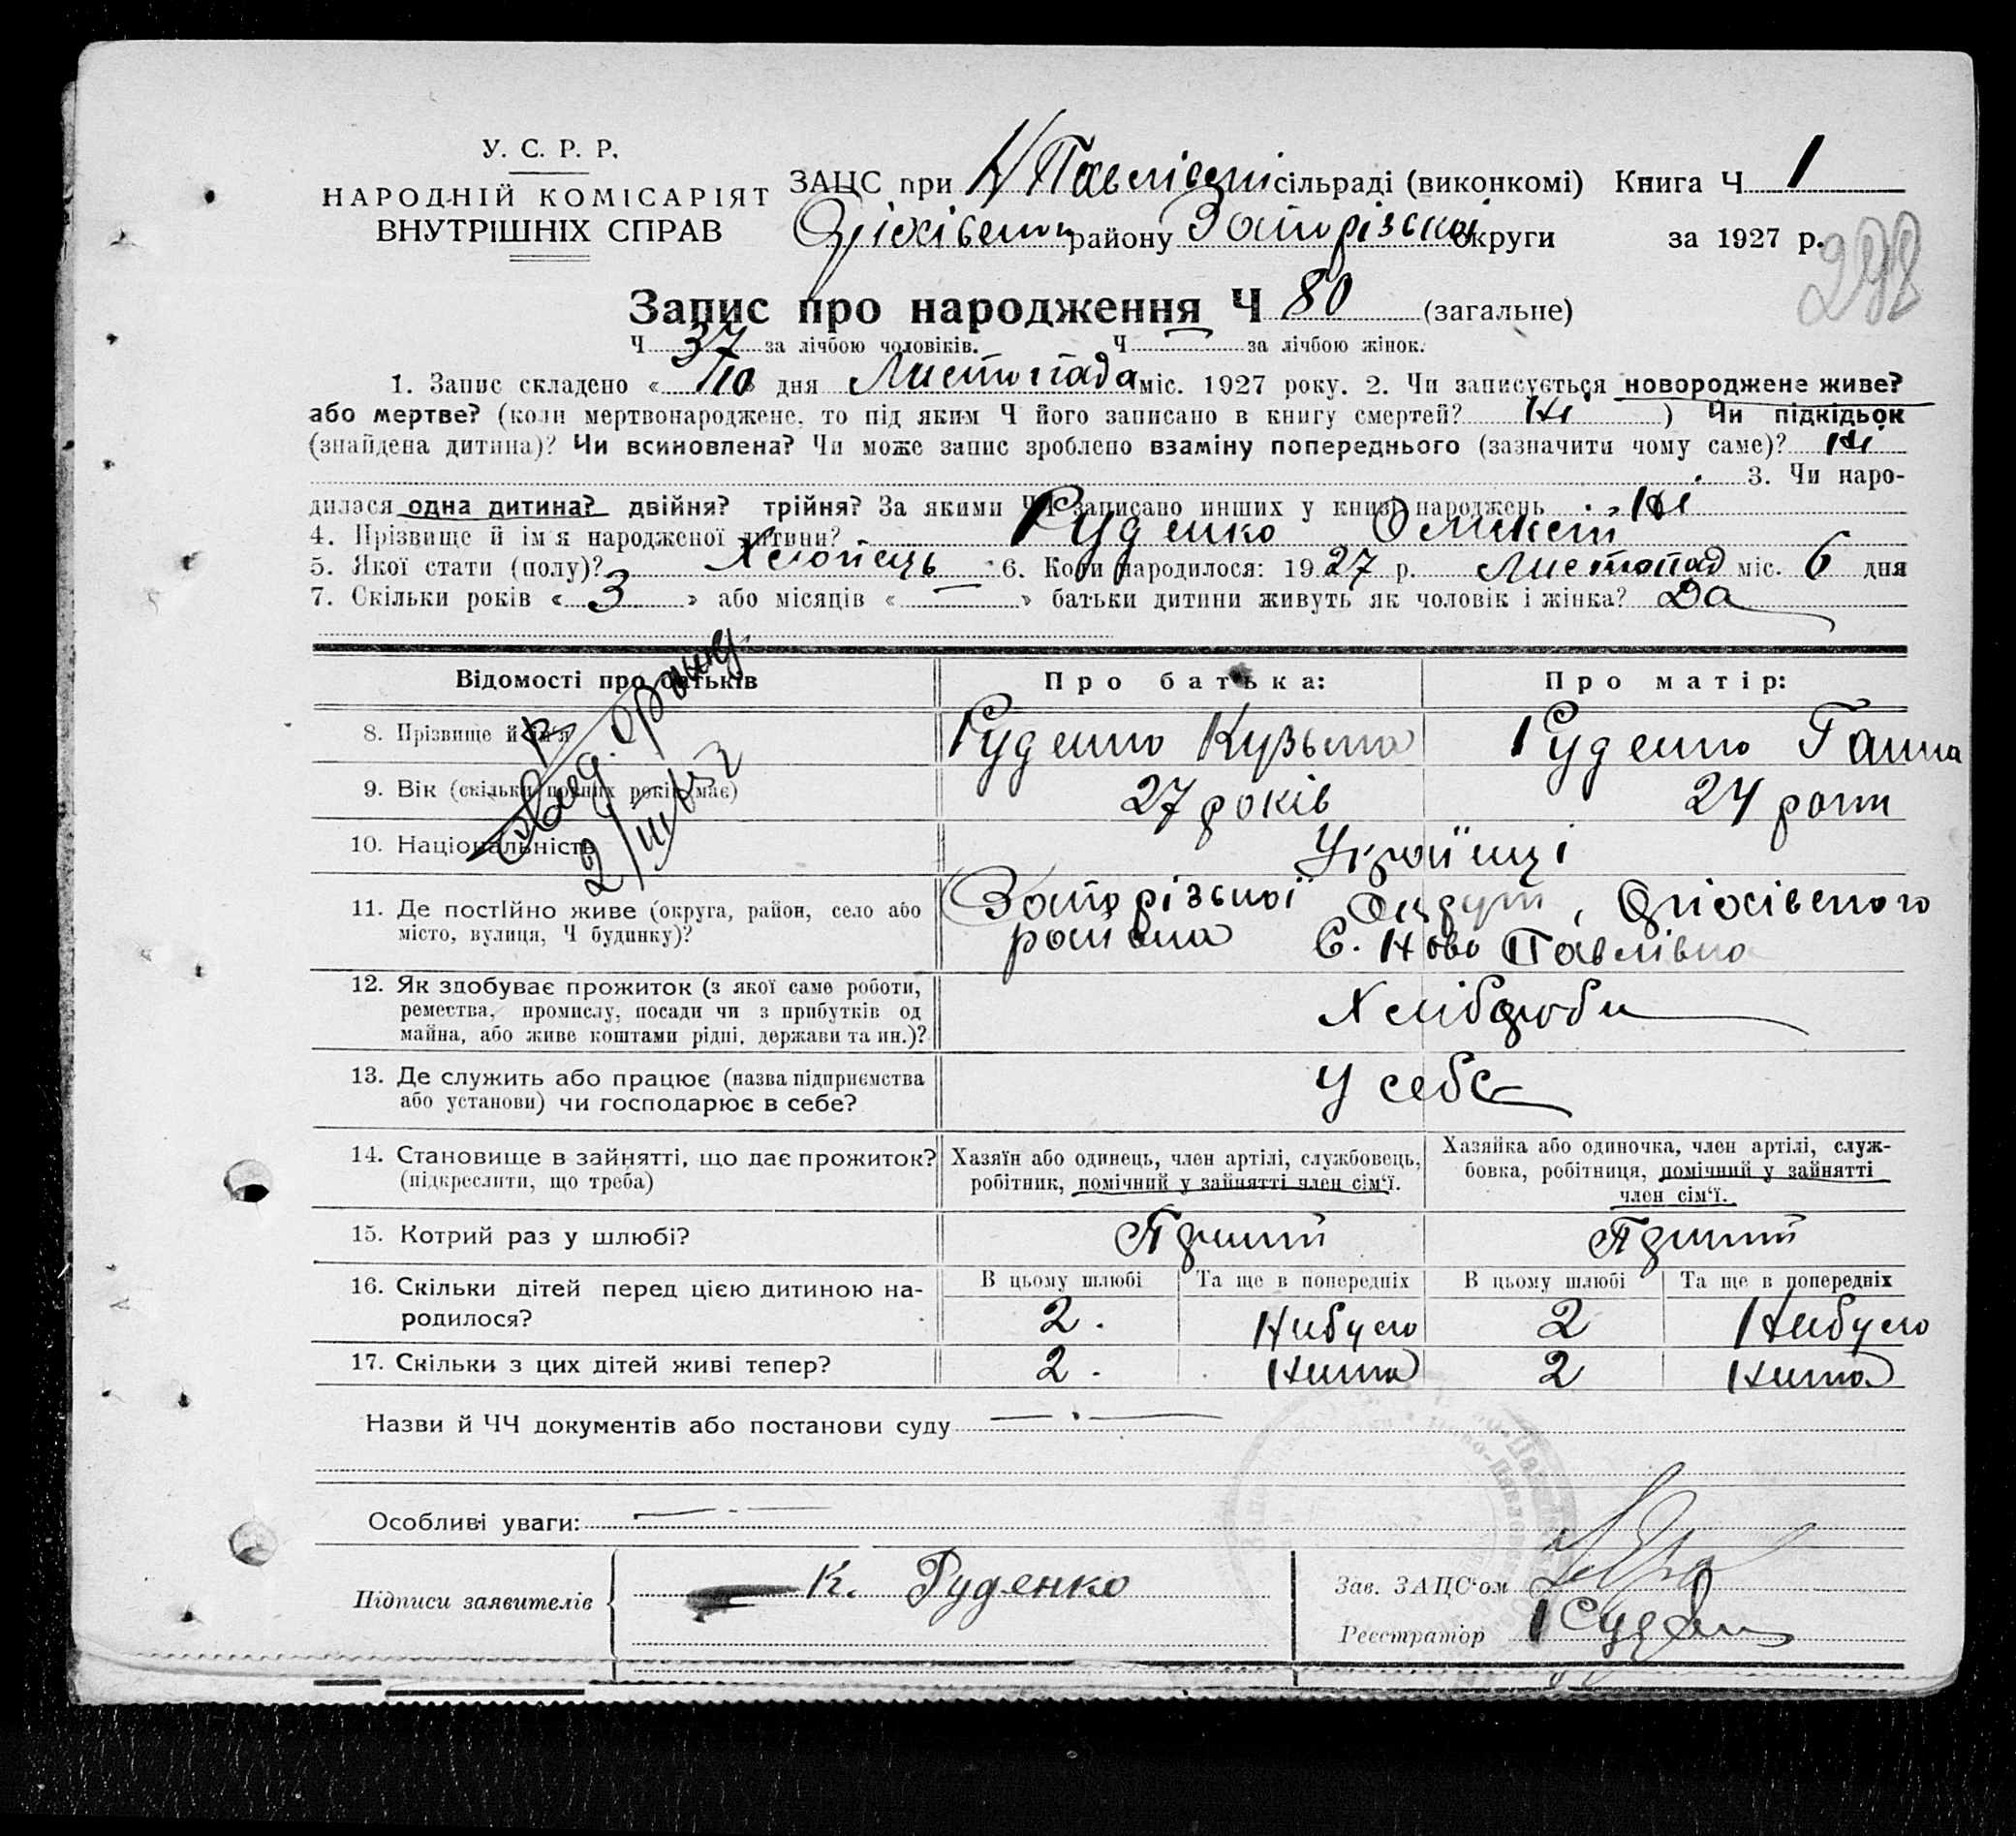 У. С. Р. Р.
НАРОДНІЙ КОМІСАРІЯТ
ВНУТРІШНІХ СПРАВ
ЗАЦС при Н Павлівській сільраді (виконкомі) Книга Ч 1
Оріхівського району Запорізької округи за 1927 р.
Запис про народження Ч 80 (загальне)
Ч 37 за лічбою чоловіків. Ч — за лічбою жінок.
1. Запис складено « 10 » дня Листопада міс. 1927 року. 2. Чи записується новороджене живе?
або мертве? (коли мертвонароджене, то під яким Ч його записано в книгу смертей? Ні ) Чи підкідьок
(знайдена дитина)? Чи всиновлена? Чи може запис зроблено взаміну попереднього (зазначити чому саме)? ні
3. Чи наро-
дилася одна дитина? двійня? трійня? За якими ЧЧ записано инших у книзі народжень Ні
4. Прізвище й ім'я народженої дитини? Руденко
5. Якої стати (полу)? Хлопець 6. Коли народилося: 1927 р. Листопад міс. 6 дня
7. Скільки років « 3 » або місяців « — » батьки дитини живуть як чоловік і жінка? Да
Відомості про батьків
Про батька:
Про матір:
8. Прізвище й ім'я
Руденко Кузьма
Руденко Ганна
9. Вік (скільки повних років має)
27 років
24 роки
10. Національність
Українці
11. Де постійно живе (округа, район, село або
місто, вулиця, Ч будинку)?
Запорізької Округи, Оріхівського
района С. Ново Павлівка
12. Як здобуває прожиток (з якої саме роботи,
ремества, промислу, посади чи з прибутків од
майна, або живе коштами рідні, держави та ин.)?
Хлібороби
13. Де служить або працює (назва підприємства
або установи) чи господарює в себе?
У себе
14. Становище в зайнятті, що дає прожиток?
(підкреслити, що треба)
Хазяїн або одинець, член артілі, службовець,
робітник, помічний у зайнятті член сім'ї.
Хазяйка або одиночка, член артілі, служ-
бовка, робітниця, помічний у зайнятті
член сім'ї.
15. Котрий раз у шлюбі?
16. Скільки дітей перед цією дитиною на-
родилося?
В цьому шлюбі Та ще в попередніх В цьому шлюбі Та ще в попередніх
2. Нибуло 2 Нибуло
17. Скільки з цих дітей живі тепер?
2. Нима 2 Нима
Назви й ЧЧ документів або постанови суду
Особливі уваги:
Підписи заявителів
К. Руденко
Зав. ЗАЦС'ом
Реєстратор